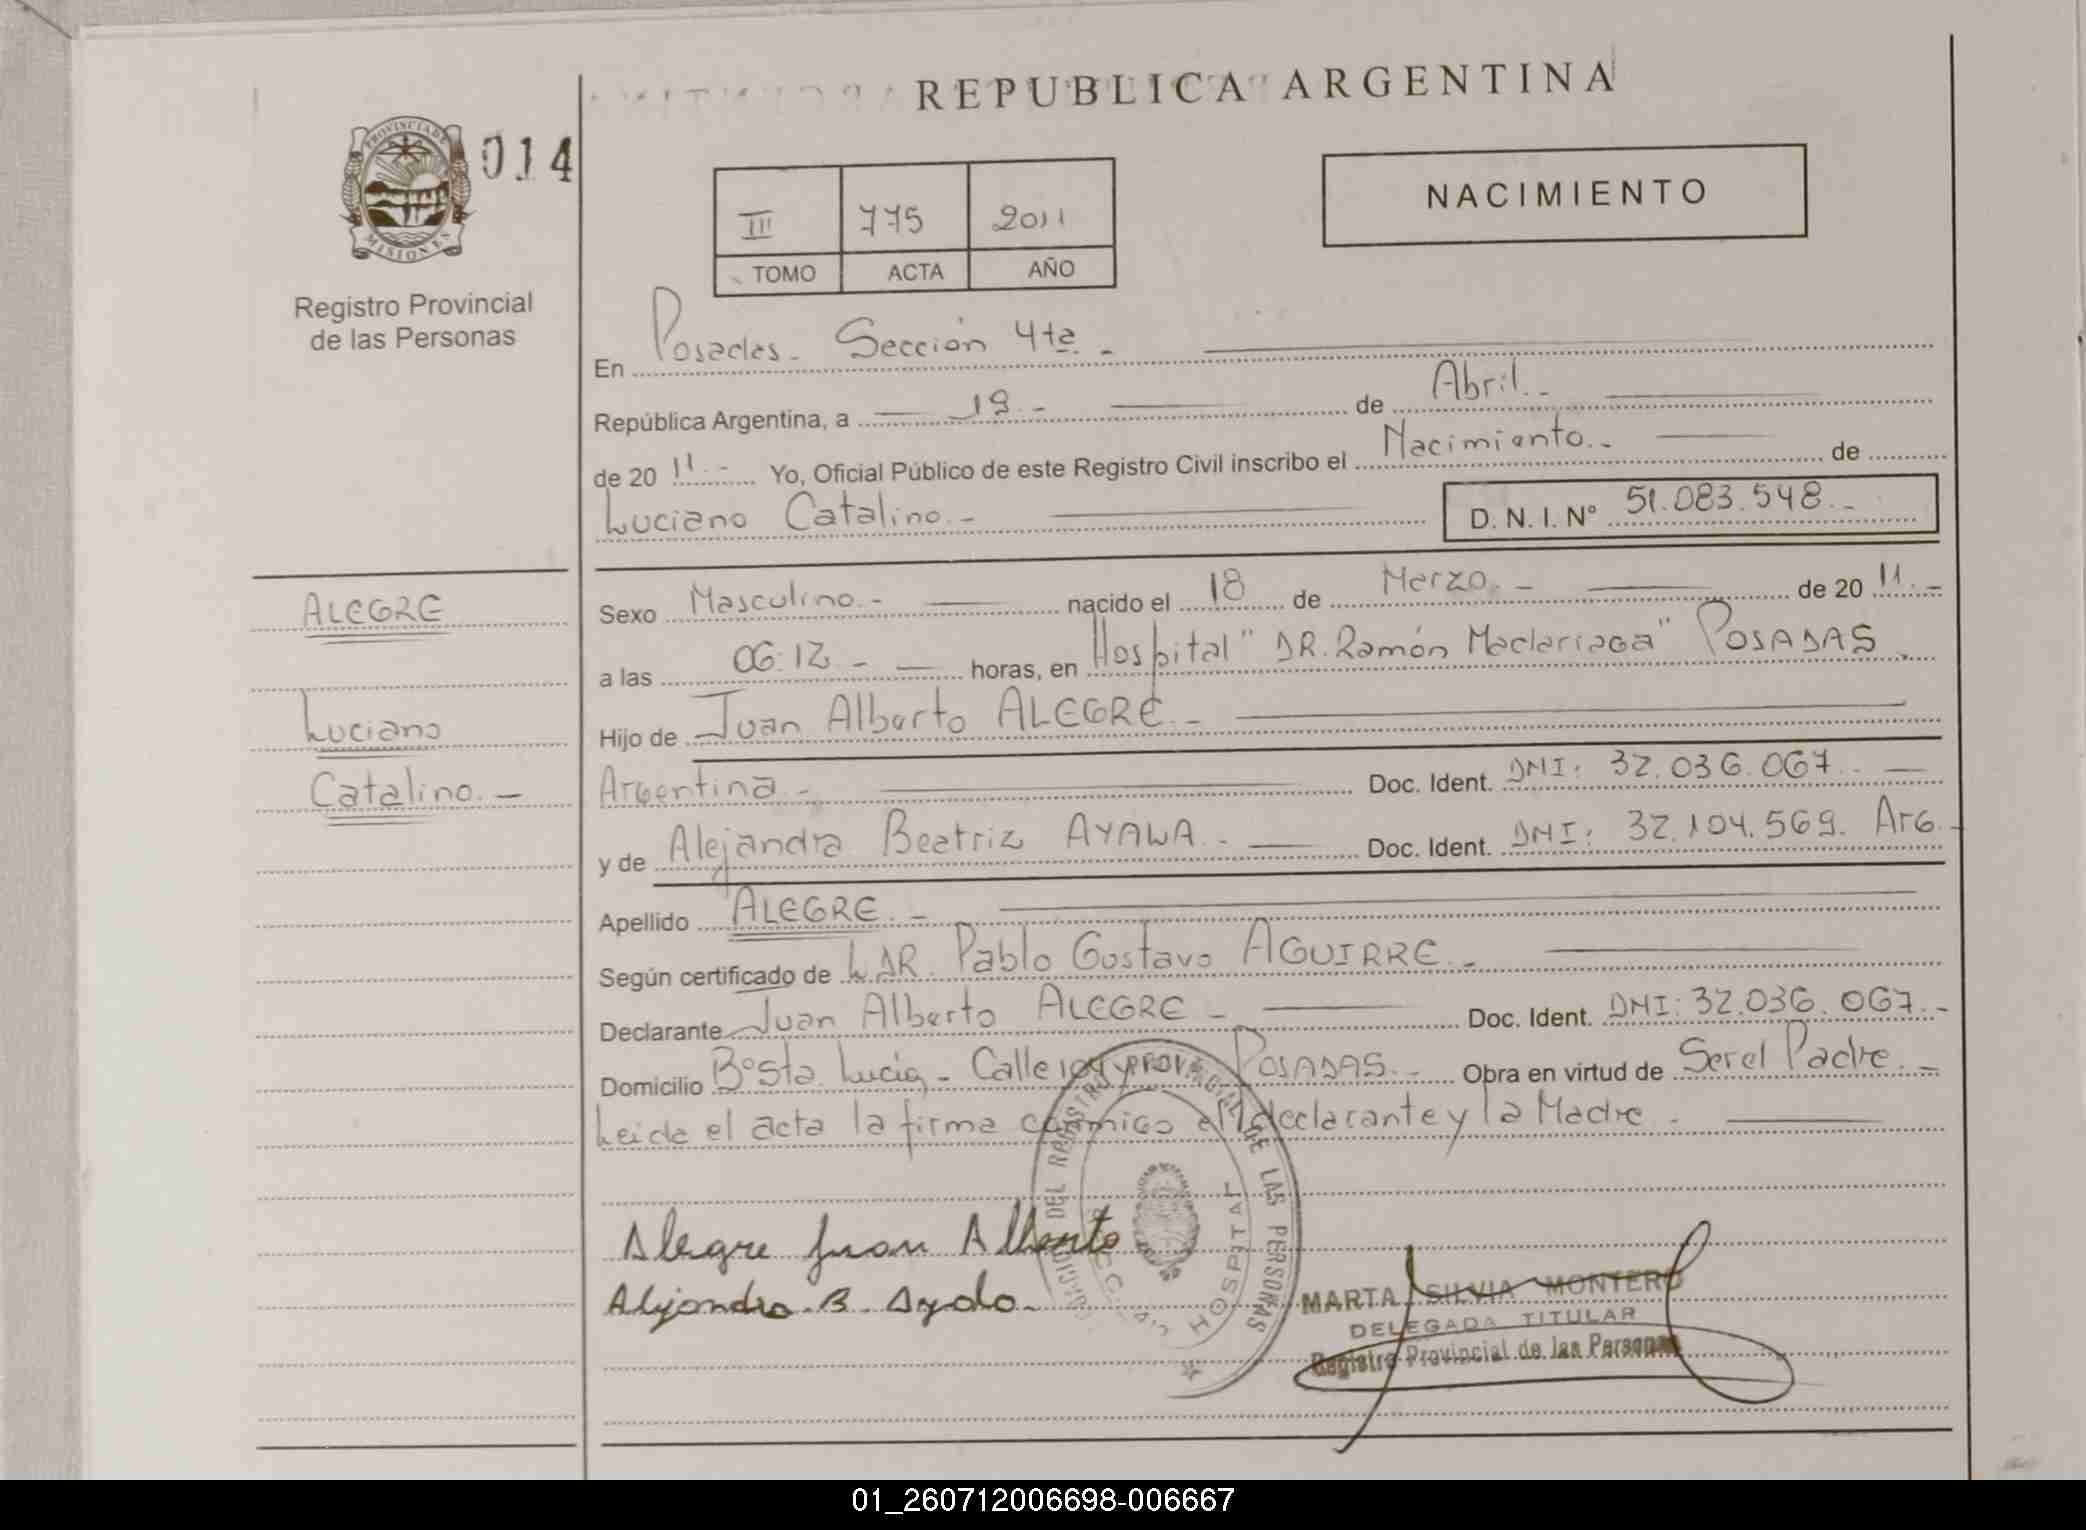 REPUBLICA ARGENTINA
PROVINCIA DE
MISIONES
014
Registro Provincial
de las Personas
III 775 2011
TOMO ACTA AÑO
NACIMIENTO
En Posadas - Sección 4ta -
República Argentina, a 19 - de Abril -
de 20 11 - Yo, Oficial Público de este Registro Civil inscribo el Nacimiento - de
Luciano Catalino - D. N. I. Nº 51.083.548 -
Sexo Masculino - nacido el 18 de Marzo - de 20 11 -
a las 06:12 - horas, en Hospital "DR. Ramón Madariaga" POSADAS
Hijo de Juan Alberto ALEGRE -
Argentina - Doc. Ident. DNI: 32.036.067 -
y de Alejandra Beatriz AYALA - Doc. Ident. DNI: 32.104.569. Arg.
Apellido ALEGRE -
Según certificado de LAR. Pablo Gustavo AGUIRRE -
Declarante Juan Alberto ALEGRE - Doc. Ident. DNI: 32.036.067 -
Domicilio Bº Sta. Lucía - Calle POSADAS - Obra en virtud de Ser el Padre -
Leída el acta la firma conmigo el declarante y la Madre -
ALEGRE
Luciano
Catalino -
Alegre Juan Alberto
Alejandra B. Ayala
DEL REGISTRO PROVINCIAL DE LAS PERSONAS
HOSPITAL
MARTA SILVIA MONTERO
DELEGADA TITULAR
Registro Provincial de las Personas
01_260712006698-006667